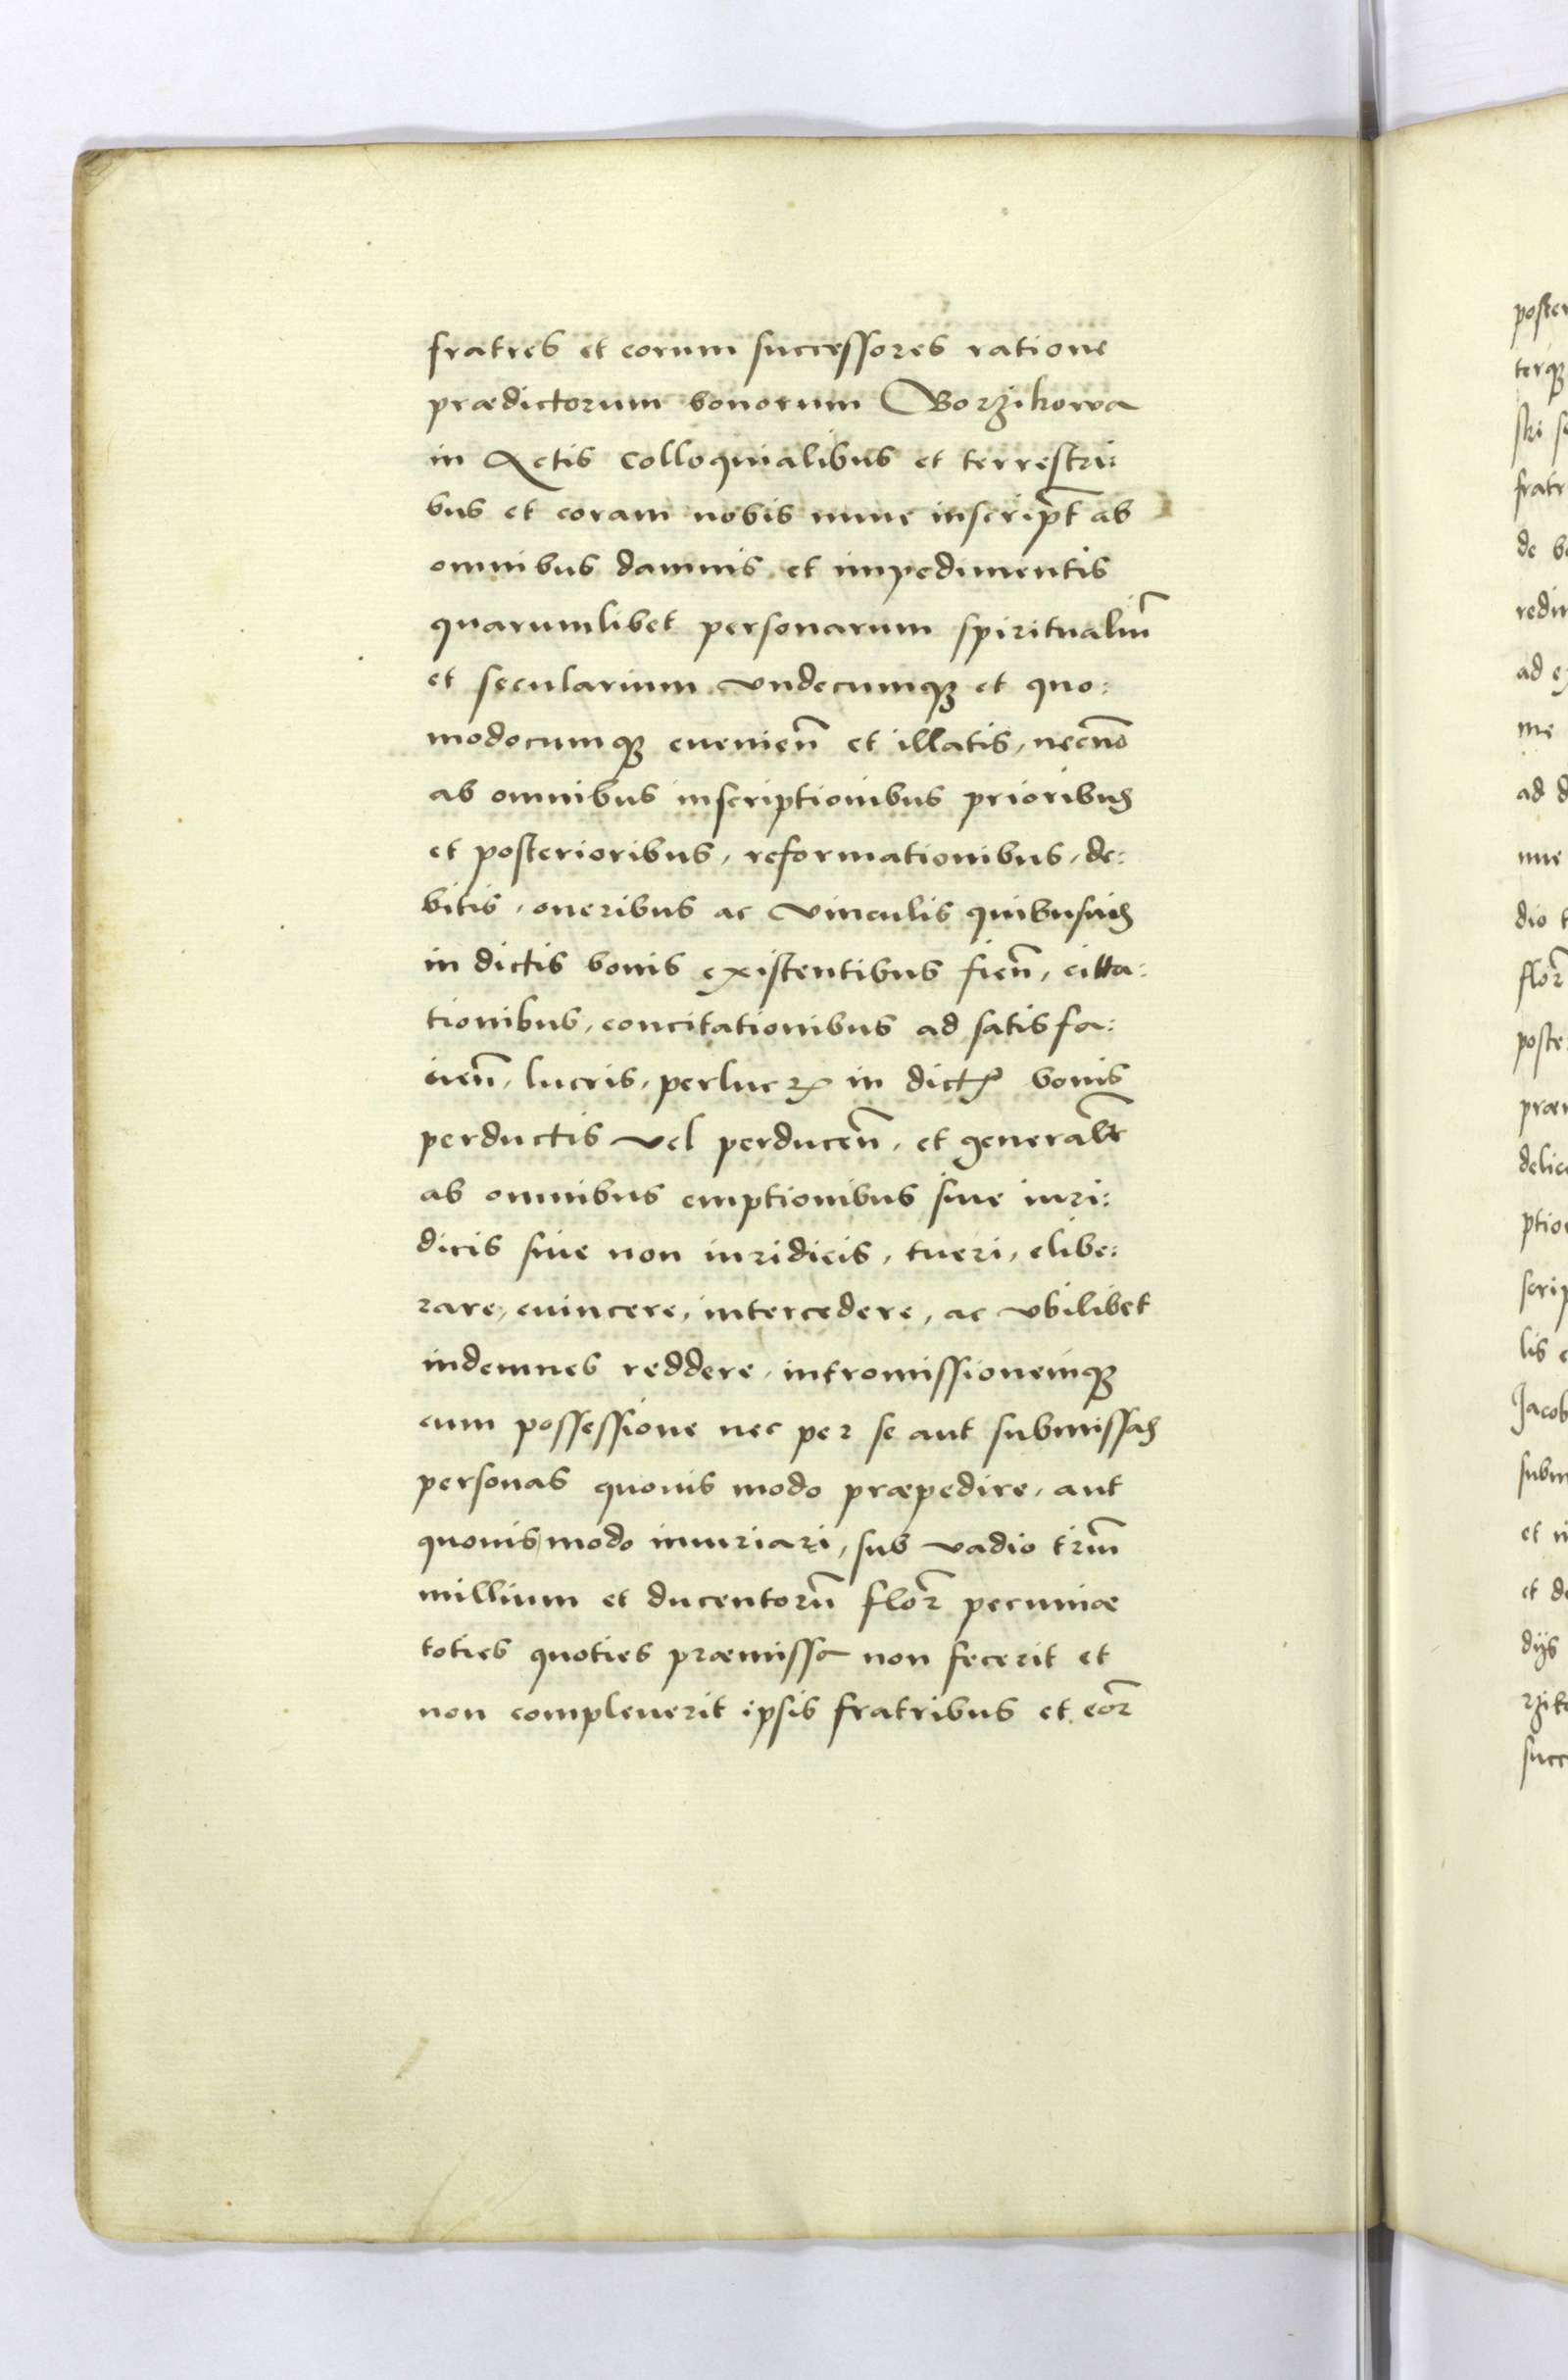 fratres et eorum successores ratione
prædictorum bonorum Borzikowa
in Actis colloquialibus et terrestri:
bus et coram nobis nunc inscript̃ ab
omnibus damnis et impedimentis
quarumlibet personarum spiritualiũ
et secularium vndecumqꝫ et quo:
modocumqꝫ euenien̄ et illatis, necnō
ab omnibus inscriptionibus prioribus
et posterioribus, reformationibus, de:
bitis, oneribus ac vinculis quibusuis
in dictis bonis existentibus fien̄, citta:
tionibus, concitationibus ad satisfa:
cien̄, lucris, perlucꝝ in dictꝭ bonis
perductis vel perducen̄, et generalr̃
ab omnibus emptionibus siue iuri:
dicis siue non iuridicis, tueri, elibe:
rare, euincere, intercedere, ac vbilibet
indemnes reddere, intromissionemqꝫ
cum possessione nec per se aut submissas
personas quouis modo præpedire, aut
quouis modo iniuriari, sub vadio triũ
millium et ducentorũ flor̃ pecuniæ
toties quoties præmissa non fecerit et
non compleuerit ipsis fratribus et eor̃